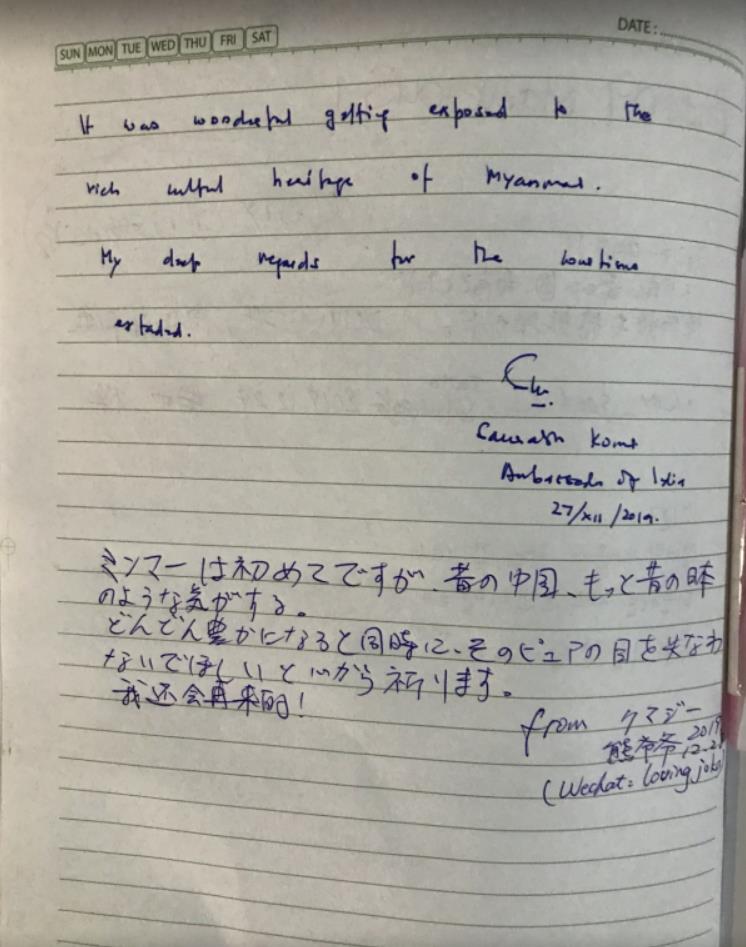 SUN MON TUE WED THU FRI SAT
DATE:
It was wonderful getting exposed to the
rich cultural heritage of Myanmar.
My deep regards for the
extended.
Ambassador of India
27/XII/2019.
ミンマーは初めてですが、昔の中国、もっと昔の日本
のような気がする。
どんどん豊かになると同時に、そのピュアの目を失なわ
ないでほしいと心から祈ります。
我还会再来的!
from クマジー
熊希希 2019
12-2
(Wechat: lovingjoke